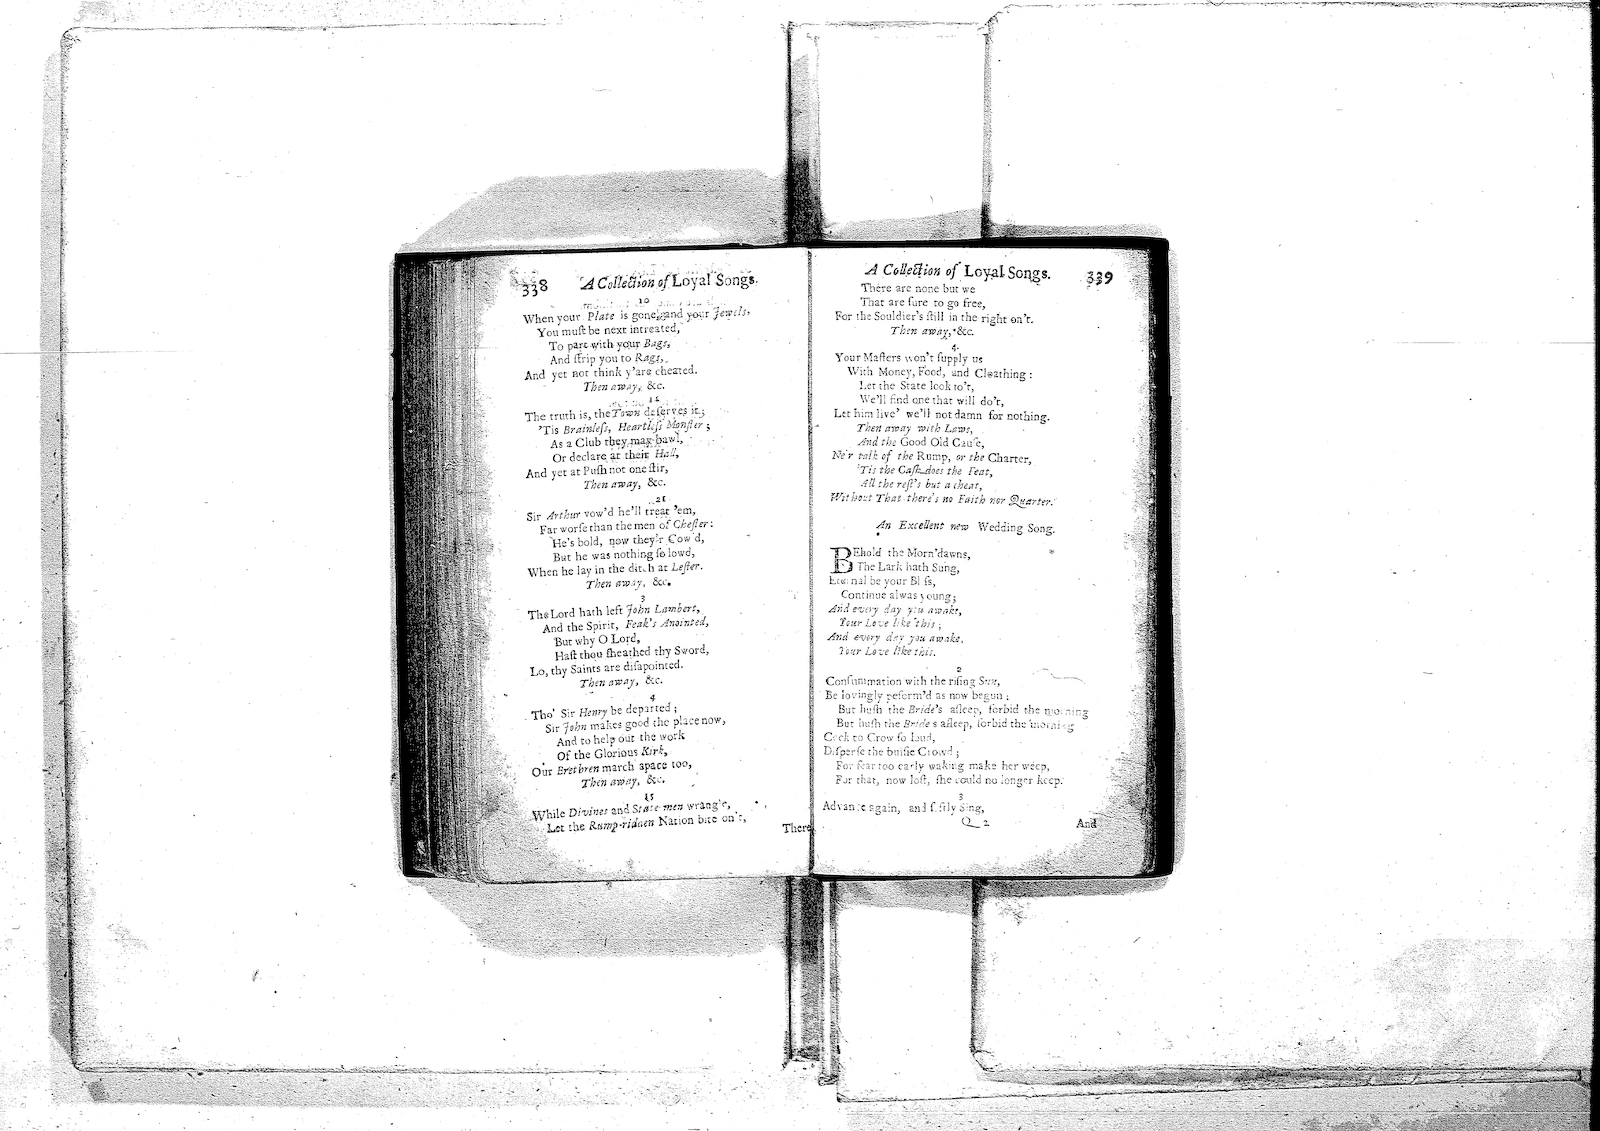 338 A Collection of Loyal Songs.
10
When your Plate is gone, and your Jewels,
You muſt be next intreated,
To part with your Bags,
And ſtrip you to Rags,
And yet not think y'are cheated.
Then away, &c.
The truth is, the Town deſerves it;
'Tis Brainleſs, Heartleſs Monſter;
As a Club they may bawl,
Or declare at their Hall,
And yet at Puſh not one ſtir,
Then away, &c.
Sir Arthur vow'd he'll treat 'em,
Far worſe than the men of Cheſter:
He's bold, now they'r Cow'd,
But he was nothing ſo lowd,
When he lay in the ditch at Leſter.
Then away, &c.
3
The Lord hath left John Lambert,
And the Spirit, Feak's Anointed,
But why O Lord,
Haſt thou ſheathed thy Sword,
Lo, thy Saints are diſapointed.
Then away, &c.
4
Tho' Sir Henry be departed;
Sir John makes good the place now,
And to help out the work
Of the Glorious Kirk,
Our Brethren march apace too,
Then away, &c.
15
While Divines and State-men wrangle,
Let the Rump-ridden Nation bite on't,
There
A Collection of Loyal Songs. 339
There are none but we
That are ſure to go free,
For the Souldier's ſtill in the right on't.
Then away, &c.
4.
Your Maſters won't ſupply us
With Money, Food, and Cloathing:
Let the State look to't,
We'll find one that will do't,
Let him live' we'll not damn for nothing.
Then away with Laws,
And the Good Old Cauſe,
Ne'r talk of the Rump, or the Charter,
'Tis the Caſh does the Feat,
All the reſt's but a cheat,
Without That there's no Faith nor Quarter.
An Excellent new Wedding Song.
BEhold the Morn'dawns,
The Lark hath Sung,
Eternal be your Bliſs,
Continue alwas young;
And every day you awake,
Your Love like this;
And every day you awake,
Your Love like this.
2
Conſummation with the riſing Sun,
Be lovingly peform'd as now begun;
But huſh the Bride's aſleep, forbid the morning
But huſh the Bride's aſleep, forbid the morning
Cock to Crow ſo loud,
Diſperſe the buiſie Crowd;
For fear too early waking make her weep,
For that, now loſt, ſhe could no longer keep.
3
Advance again, and ſoftly Sing,
Q 2 And